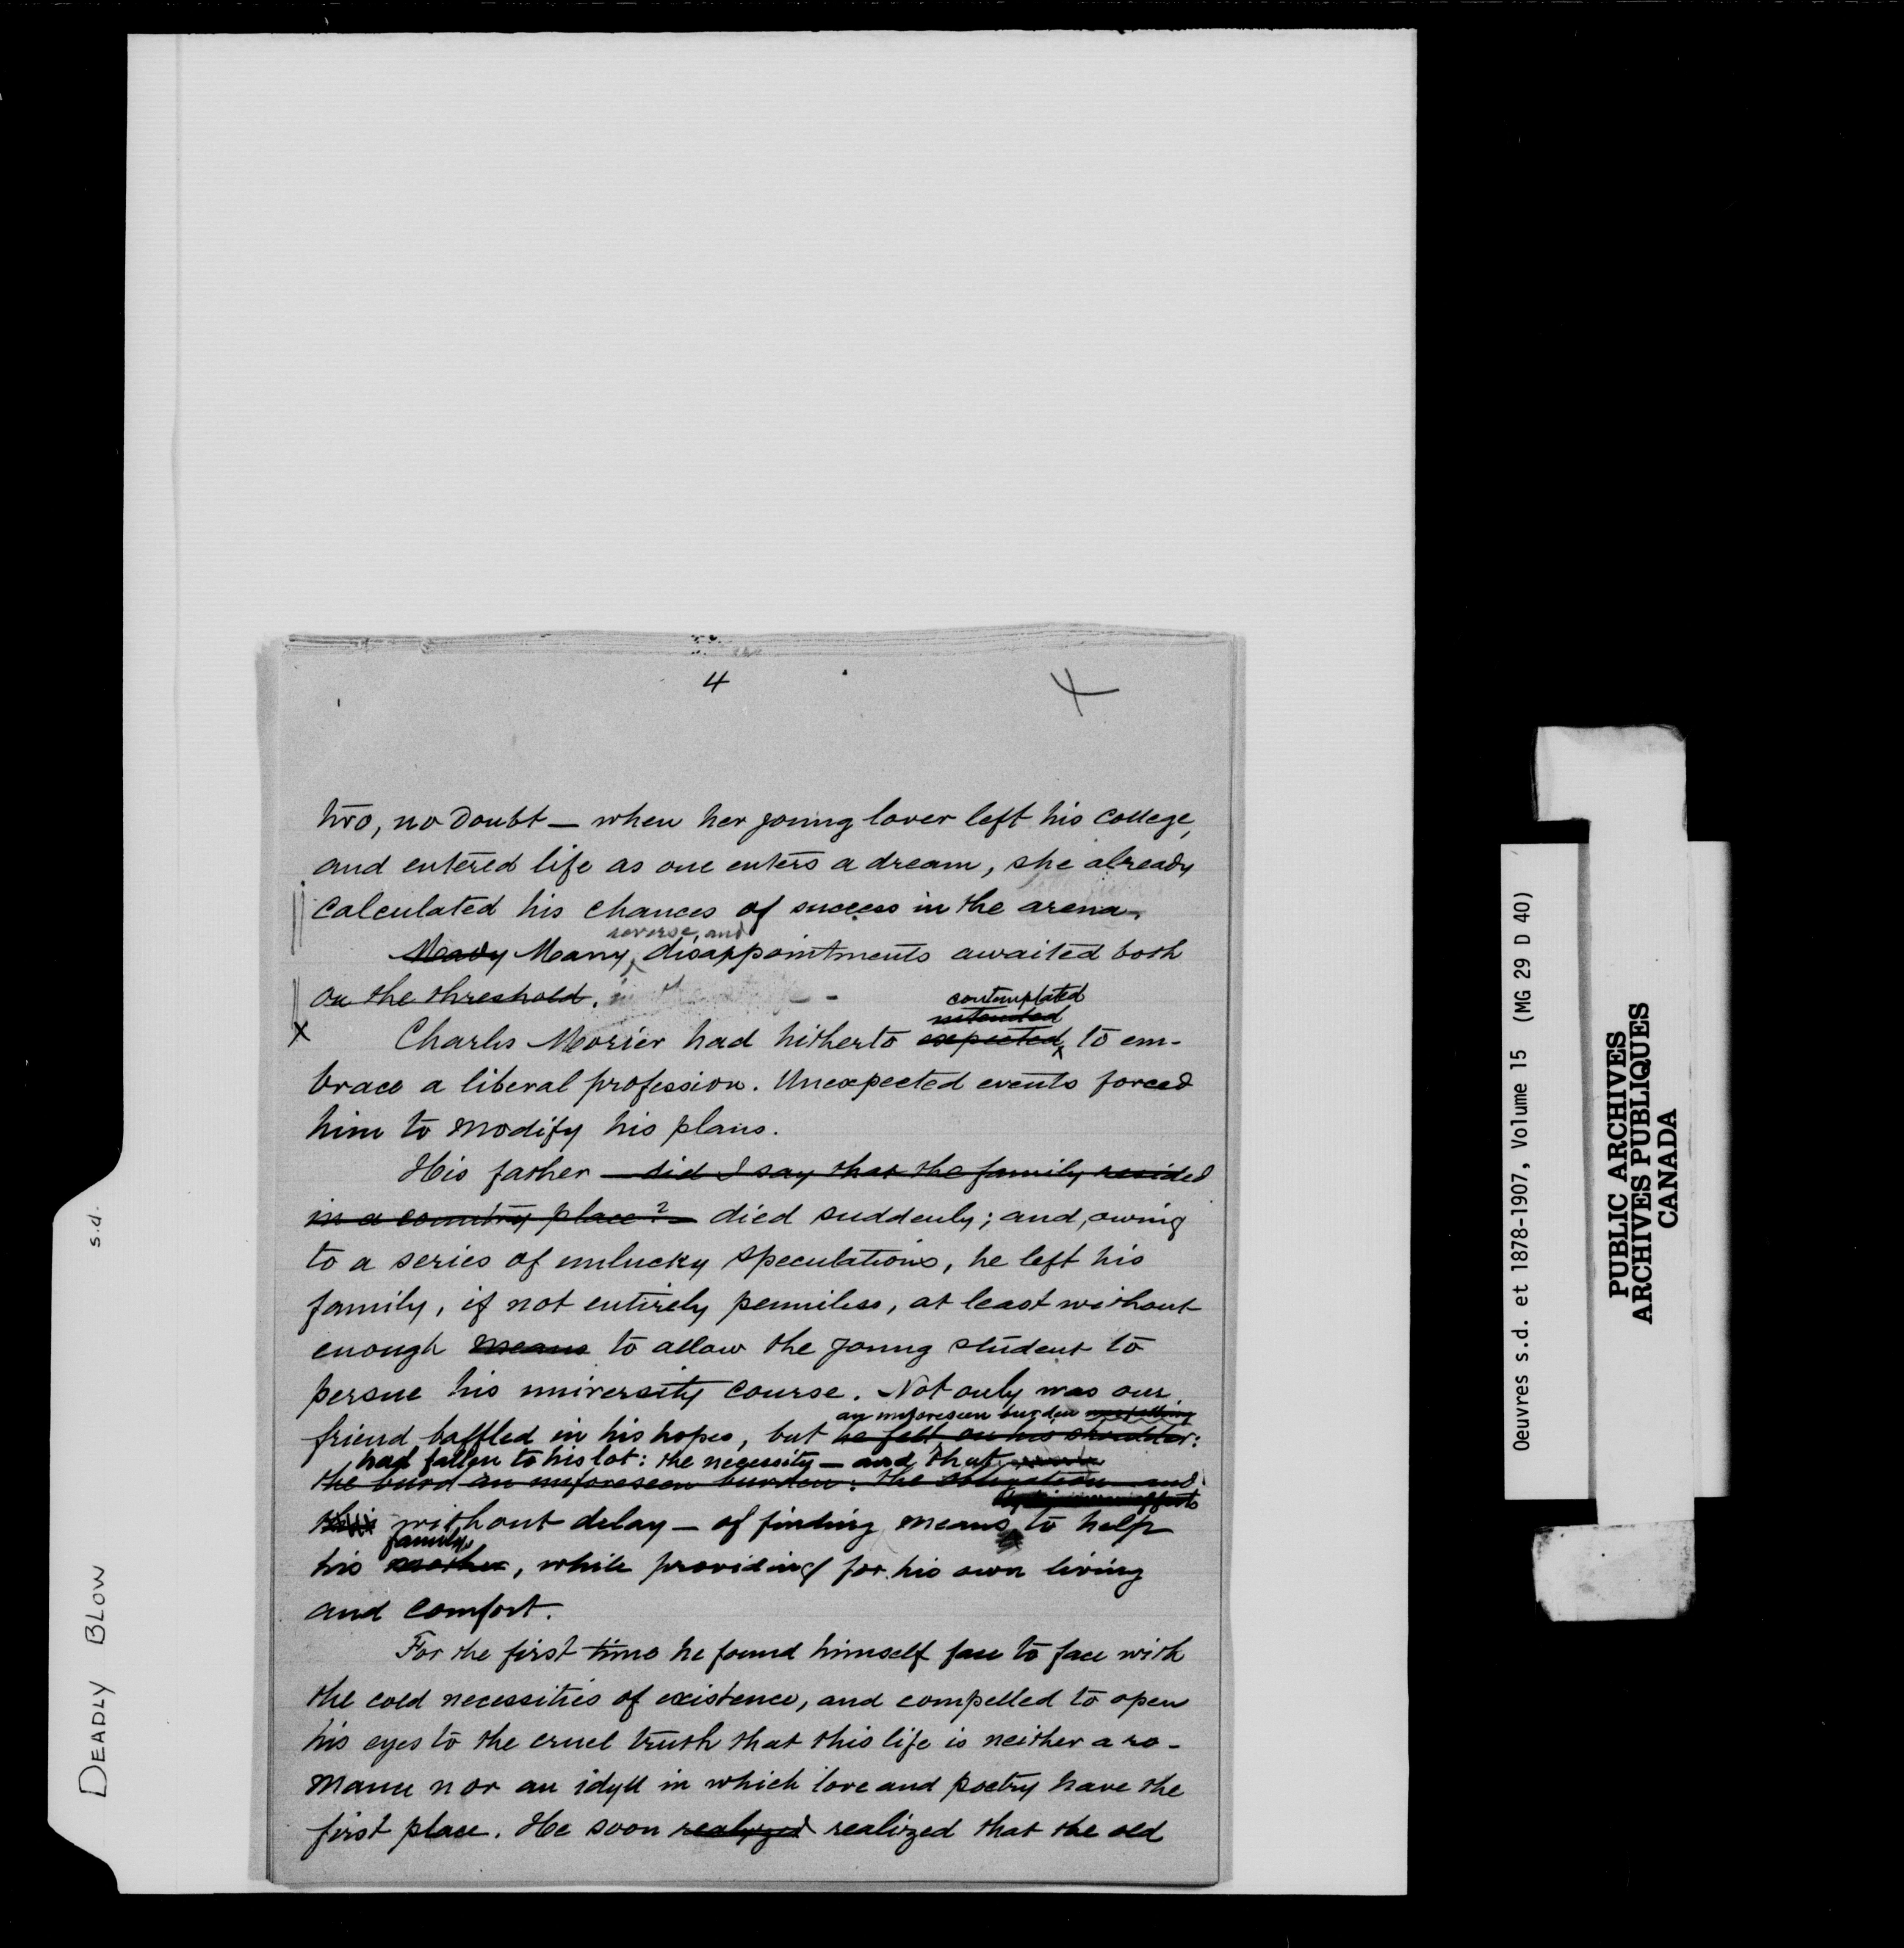 4
two, no doubt — when her young lover left his college,
and entered life as one enters a dream, she already
calculated his chances of success in the arena.
reverse, and
Many disappointments awaited both
on the threshold.
contemplated
intended
X Charles Morier had hitherto expected to em-
brace a liberal profession. Unexpected events forced
him to modify his plans.
His father — did I say that the family resided
in a country place? — died suddenly; and, owing
to a series of unlucky speculations, he left his
family, if not entirely penniless, at least without
enough means to allow the young student to
persue his university course. Not only was our
an unforeseen burden
friend baffled in his hopes, but he felt on his shoulder:
had fallen to his lot: the necessity — and that
the burd an unforeseen burden: the obligation and
efforts
without delay — of finding means to help
family
his mother, while providing for his own living
and comfort.
For the first time he found himself face to face with
the cold necessities of existence, and compelled to open
his eyes to the cruel truth that this life is neither a ro-
mance nor an idyll in which love and poetry have the
first place. He soon realyzed realized that the old
DEADLY BLOW s.d.
Oeuvres s.d. et 1878-1907, Volume 15 (MG 29 D 40)
PUBLIC ARCHIVES
ARCHIVES PUBLIQUES
CANADA